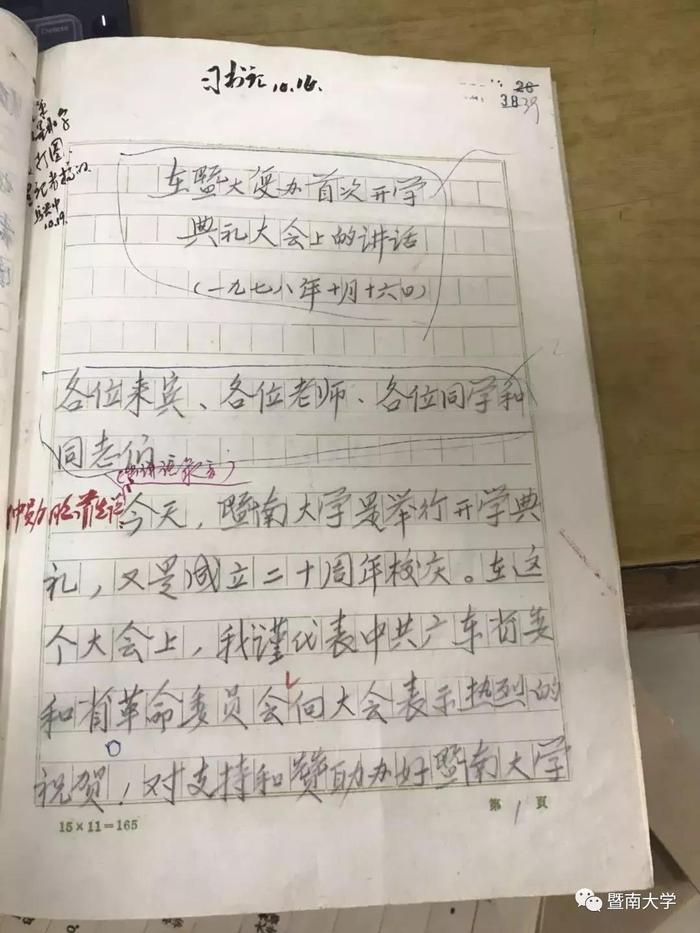 习书记 10.16.
28
38 39
打图
10.19.
在暨大复办首次开学
典礼大会上的讲话
(一九七八年十月十六日)
各位来宾、各位老师、各位同学和
同志们
今天，暨南大学是举行开学典
礼，又是成立二十周年校庆。在这
个大会上，我谨代表中共广东省委
和省革命委员会向大会表示热烈的
祝贺！对支持和赞助办好暨南大学
15×11=165
第 1 頁
暨南大学